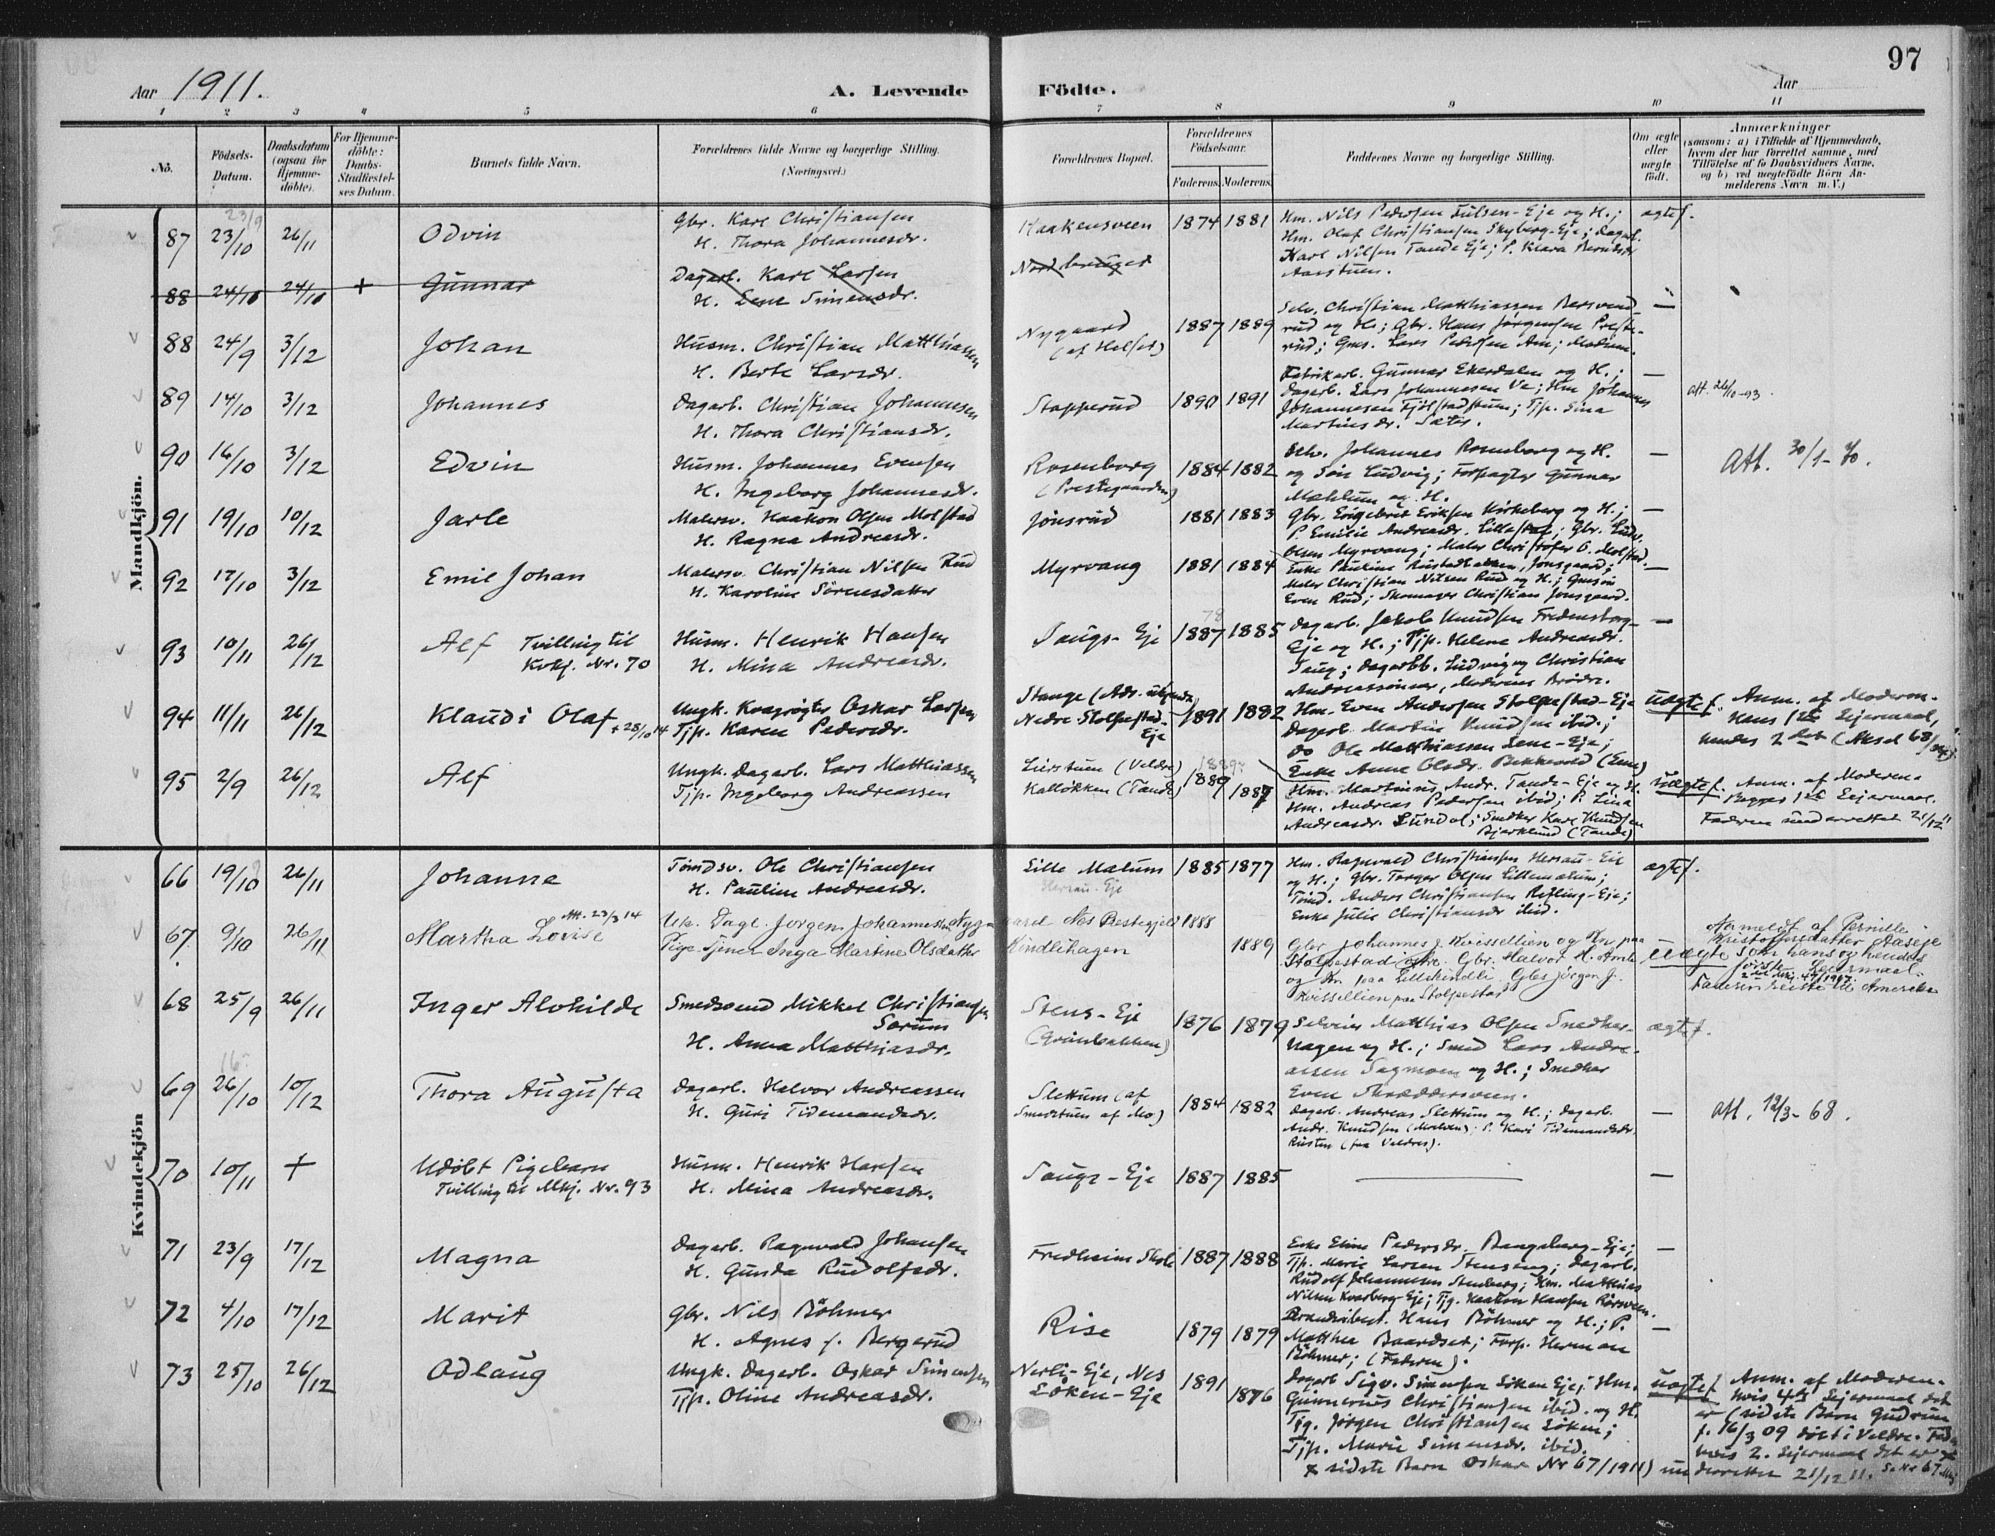 97
Aar 1911.
A. Levende Födte.
Aar
1 2 3 4 5 6 7 8 9 10 11
No.
Födsels-
Datum.
Daabsdatum
(ogsaa for
Hjemme-
döbte).
For Hjemme-
döbte:
Daabs-
Stadfæstel-
ses Datum.
Barnets fulde Navn.
Forældrenes fulde Navne og borgerlige Stilling.
(Næringsvei.)
Forældrenes Bopæl.
Forældrenes
Födselsaar.
Faderens. Moderens.
Faddernes Navne og borgerlige Stilling.
Om ægte
eller
uægte
födt.
Anmærkninger
(saasom: a) i Tilfælde af Hjemmedaab,
hvem der har forrettet samme, med
Tilföielse af to Daabsvidners Navne,
og b) ved uægtefödte Börn An-
melderens Navn m. V.)
Mandkjön.
23/9
87 23/10 26/11 Odvin
Gbr. Karl Christiansen
H. Thora Johannesdr.
Haakensveen 1874 1881
Hm. Nils Pedersen Fulsen-Eje og H.;
Hm. Olaf Christiansen Skyberg-Eje; Dagarb.
Karl Nilsen Tande Eje; P. Klara Berntsdr.
Aarstuen.
ægtef.
88 24/10 24/10 + Gunnar
Dagarb. Karl Larsen
H. Lene Simensdr.
88 24/9 3/12 Johan
Husm. Christian Matthiassen
H. Berte Larsdr.
Nygaard
(af Helset)
1887 1889
Selv. Christian Matthiassen Bersvend-
rud og H.; Gbr. Hans Jørgensen Preste-
rud; Gms. Lars Pedersen Am; Moderen.
—
89 14/10 3/12 Johannes
Dagarb. Christian Johannesen
H. Thora Christiansdr.
Stopperud 1890 1891
Fabrikarb. Gunnar Ekerdalen og H.;
Dagarb. Lars Johannesen Ve; Hm Johannes
Johannesen Fjølstadstuen; Tjp. Lina
Martinsdr. Sæter.
—
Att. 26/10-93.
90 16/10 3/12 Edvin
Husm. Johannes Evensen
H. Ingeborg Johannesdr.
Rosenborg
(Prestegaarden)
1884 1882
Selv. Johannes Rosenborg og H.
og Søn Ludvig; Forpagter Gunnar
Mæhlum og H.
—
Att. 30/1-70.
91 19/10 10/12 Jarle
Malersv. Haakon Olsen Molstad
H. Ragna Andreasdr.
Jønsrud 1881 1883
Gbr. Engebret Eriksen Kirkeberg og H.;
P. Emilie Andreasdr. Lillestad; Gbr. Ludv.
Olsen Myrvang; Maler Christofer O. Molstad.
—
92 17/10 3/12 Emil Johan
Malersv. Christian Nilsen Rud
H. Karoline Sørensdatter
Myrvang 1881 1884
Maler Christian Nilsen Rud og H.; Gmsøn
Even Rud; Skomager Christian Jønsgaard.
—
93 10/11 26/12 Alf Tvilling til
Kvkj. Nr. 70
Husm. Henrik Hansen
H. Mina Andreasdr.
Saugs-Eje
78
1887 1885
Dagarb. Jakob Knudsen Fredensborg-
Eje og H.; Tjp. Helene Andreasdr.
Saug; Dagarbb. Ludvig og Christian
Andreassønner, Moderens Brødre.
—
94 11/11 26/12 Klaudi Olaf + 28/10 14
Ungk. Kvægrøgter Oskar Larsen
Tjp. Karen Pedersdr.
Nedre Stolpestad-
Eje
1891 1882
Hm. Even Andersen Stolpestad-Eje
Dagarb. Martin Knudsen ibid.;
Do Ole Matthiassen Lene-Eje;
Enke Anne Olsdr. Bekkevold (Lene)
uægtef.
Anm. af Moderen.
Hans 1ste Lejermaal,
hendes 2det
95 2/9 26/12 Alf
Ungk. Dagarb. Lars Matthiassen
Tjp. Ingeborg Andreassen
Lierstuen (Veldre)
Kalløkken (Tande)
1889 1887
Hm. Martinus Andr. Tande-Eje og H.
Hm. Andreas Pedersen ibid; P. Lina
Andreasdr. Lundal; Snedker Karl Knudsen
Bjerklund (Tande)
uægtef.
Anm. af Moderen.
Begges 1ste Lejermaal.
Faderen underrettet 21/12 11
Kvindekjön
66 19/10 26/11 Johanne
Tømdsv. Ole Christiansen
H. Pauline Andreasdr.
Lille Mælum
Hersau-Eje
1885 1877
Hm. Ragnvald Christiansen Hersau-Eje
og H.; Gbr. Torger Olsen Lillemælum;
Tømd. Anders Christiansen Refling-Eje;
Enke Julie Christiansdr ibid.
ægtef.
67 9/10 26/11 Att. 23/3 14
Martha Lovise
Uk. Dagl. Jørgen Johannessen Nygaard Nes Prestegjeld
Pige tjener Inga Martine Olsdatter
Kindlihagen
1888
1889
Gbr. Johannes J. Kvissellien og Kn. paa
Stolpestad østre. Gbr. Halvor H. Arnte
og Kn paa Lillekindli. Gbs Jörgen J.
Kvissellien paa Stolpestad
—
uægte
Anmeldt af Pernille
Kristoffersdatter Aaseje
som hans og hendes
første Lejermaal.
Faderen reiste til Amerika
68 25/9 26/11 Inger Alvhilde
Smedsvend Mikkel Christiansen
Sorum
H. Anna Matthiasdr.
Stens-Eje
(Grundbakken)
1876 1879
Selveier Matthias Olsen Snedker-
hagen og H.; Smed Lars Andre-
assen Sagmoen og H.; Snedker
Even Skræddersveen.
ægtef.
16
69 26/10 10/12 Thora Augusta
Dagarb. Halvor Andreassen
H. Guri Tidemandsdr.
Slettum (af
Smedstuen af Mo)
1884 1882
Dagarb. Andreas Slettum og H.; Dagarb.
Andr. Knudsen (Moelven); P. Kari Tidemandsdr.
Rusten (fra Valdres).
—
Att. 12/3-68.
70 10/11 + Udøbt Pigebarn
Tvilling til Mkj. Nr. 93
Husm. Henrik Hansen
H. Mina Andreasdr.
Saugs-Eje 1887 1885
—
71 23/9 17/12 Magna
Dagarb. Ragnvald Johansen
H. Gunda Rudolfsdr.
Fredheim Skole 1887 1888
Enke Eline Pedersdr. Bangsberg-Eje;
Tjp. Marie Larsen Stenseng; Dagarb.
Rudolf Johannesen Stenberg; Hm. Matthias
Nilsen Kvarberg-Eje; Tjg. Haakon Hansen Rørsveen.
—
72 4/10 17/12 Marit
Gbr. Nils Böhmer
H. Agnes f. Bergerud
Rise 1879 1879
Brandvibest. Hans Böhmer og H.; P.
Matthea Baardset; Forp. Herman
Böhmer; (Faderen).
—
73 25/10 26/12 Odlaug
Ungk. Dagarb. Oskar Simensen
Tjp. Oline Andreasdr.
Nerli-Eje, Nes
Løken-Eje
1891
1876
Dagarb Sigv. Simensen Løken Eje; Hm.
Gunnerius Christiansen ibid. og H.
Tjg. Jørgen Christiansen Løken;
Tjp. Marie Simensdr. ibid.
x sidste Barn Oskar Nr 67/1911)
uægtef.
Anm. af Moderen.
hvis 4de Lejermaal det
er (sidste Barn Gudrun
f. 16/3 09 døbt i Veldre. Fader
hvis 2. Lejermaal det er x
underrettet 21/12 11.